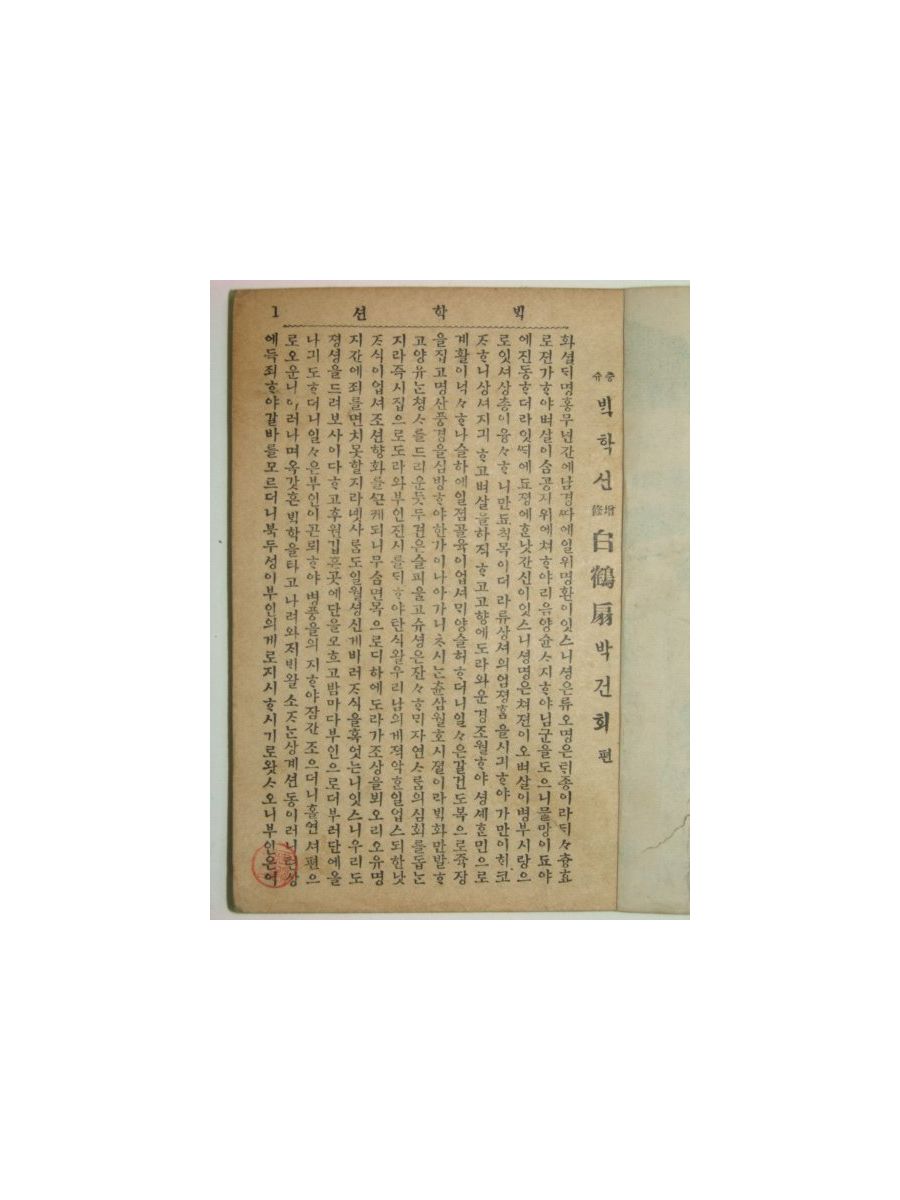 빅학션 1
증슈 빅학션 增修 白鶴扇 박건회 편
화셜ᄃᆡ명홍무년간에남경ᄯᅡ에일위명환이잇스니셩은류오명은ᄐᆡ종이라ᄃᆡᄃᆡ츙효
로젼가ᄒᆞ야벼살이삼공지위에쳐ᄒᆞ야리음양슌ᄉᆞ지ᄒᆞ야님군을도으니믈망이됴야
에진동ᄒᆞ더라잇ᄯᅢ에됴졍에ᄒᆞᆫ낫간신이잇스니셩명은쳐젼이오벼살이병부시랑으
로잇셔상춍이융々ᄒᆞ니만됴칙목이더라류상셔의엄졍ᄒᆞᆷ을시긔ᄒᆞ야가만이히코
ᄌᆞᄒᆞ니상셔지긔ᄒᆞ고벼살을하직ᄒᆞ고고향에도라와운경조월ᄒᆞ야셩셰ᄒᆞᆫ민으로
계활이넉々ᄒᆞ나슬하에일졈골육이업셔ᄆᆡ양슬허ᄒᆞ더니일々은갈건도복으로쥭장
을집고명산풍경을심방ᄒᆞ야한가이나아가니ᄎᆞ시ᄂᆞᆫ츈삼월호시졀이라ᄇᆡᆨ화만발ᄒᆞ
고양유ᄂᆞᆫ쳥ᄉᆞ를드리운듯두견은슬피울고슈셩은잔々ᄒᆞᄆᆡ자연ᄉᆞᄅᆞᆷ의심회를돕ᄂᆞᆫ
지라즉시집으로도라와부인진시를ᄃᆡᄒᆞ야탄식왈우리남의게젹악ᄒᆞᆫ일업스되한낫
ᄌᆞ식이업셔조션향화를ᄭᅳᆫ케되니무ᄉᆞᆷ면목으로디하에도라가조상을뵈오리오유명
지간에죄를면치못할지라녯사ᄅᆞᆷ도일월셩신게바러ᄌᆞ식을혹엇ᄂᆞᆫ니잇스니우리도
졍셩을드려보사이다ᄒᆞ고후원깁흔곳에단을모흐고밤마다부인으로더부러단에올
나긔도ᄒᆞ더니일々은부인이곤뢰ᄒᆞ야병풍을의지ᄒᆞ야잠간조으더니홀연셔편으
로오운니이러나며옥갓흔ᄇᆡᆨ학을타고나려와저ᄇᆡ왈소ᄌᆞᄂᆞᆫ상계션동이러니
에득죄ᄒᆞ야갈바를모르더니북두성이부인의게로지시ᄒᆞ시기로왓ᄉᆞ오니부인은어